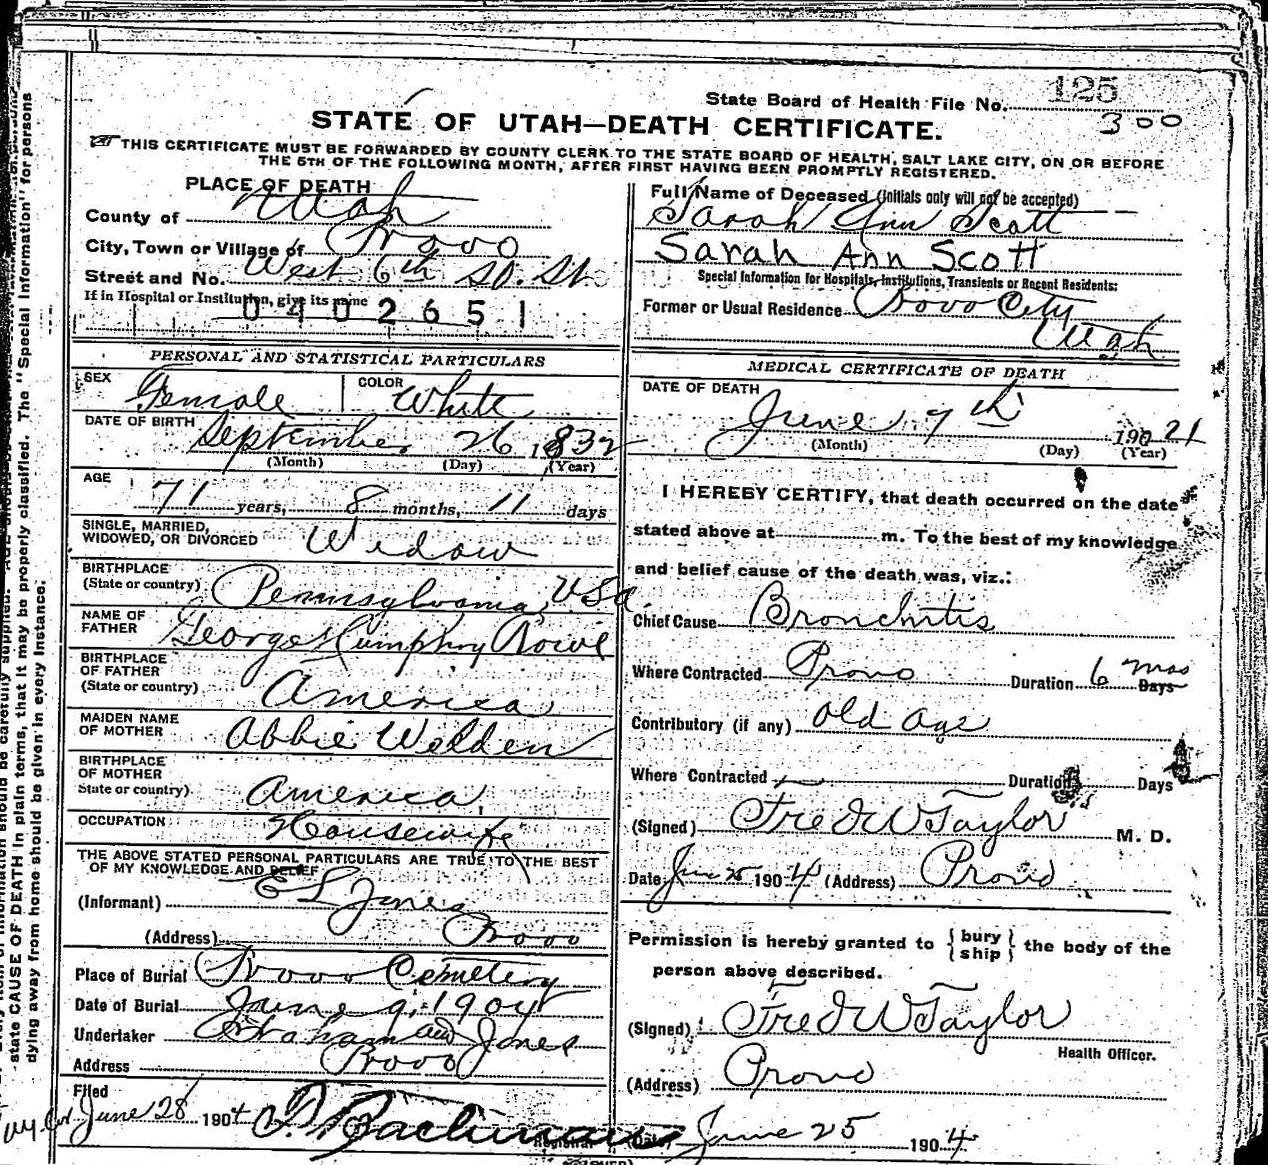 State Board of Health File No. 125
300
STATE OF UTAH—DEATH CERTIFICATE.
THIS CERTIFICATE MUST BE FORWARDED BY COUNTY CLERK TO THE STATE BOARD OF HEALTH, SALT LAKE CITY, ON OR BEFORE
THE 5TH OF THE FOLLOWING MONTH, AFTER FIRST HAVING BEEN PROMPTLY REGISTERED.
PLACE OF DEATH
County of Utah
City, Town or Village of Provo
Street and No. West 6th So. St.
If in Hospital or Institution, give its name
0402651
Full Name of Deceased (Initials only will not be accepted)
Sarah Ann Scott
Sarah Ann Scott
Special Information for Hospitals, Institutions, Transients or Recent Residents:
Former or Usual Residence Provo City
Utah
PERSONAL AND STATISTICAL PARTICULARS
SEX Female COLOR White
DATE OF BIRTH September 26 1832
(Month) (Day) (Year)
AGE 71 years, 8 months, 11 days
SINGLE, MARRIED,
WIDOWED, OR DIVORCED Widow
BIRTHPLACE
(State or country) Pennsylvania USA
NAME OF
FATHER George Humphry Rowe
BIRTHPLACE
OF FATHER
(State or country) America
MAIDEN NAME
OF MOTHER Abbie Welden
BIRTHPLACE
OF MOTHER
State or country) America
OCCUPATION Housewife
THE ABOVE STATED PERSONAL PARTICULARS ARE TRUE TO THE BEST
OF MY KNOWLEDGE AND BELIEF
(Informant) E L Jones
(Address) Provo
Place of Burial Provo Cemetery
Date of Burial June 9, 1904
Undertaker Graham and Jones
Address Provo
Filed
June 28 1904
MEDICAL CERTIFICATE OF DEATH
DATE OF DEATH
June 7th 190
(Month) (Day) (Year)
I HEREBY CERTIFY, that death occurred on the date
stated above at m. To the best of my knowledge
and belief cause of the death was, viz.:
Chief Cause Bronchitis
Where Contracted Provo Duration 6 mos Days
Contributory (if any) Old Age
Where Contracted Duration Days
(Signed) Fred W Taylor M. D.
Date June 25 1904 (Address) Provo
Permission is hereby granted to {bury
ship} the body of the
person above described.
(Signed) Fred W Taylor
Health Officer.
(Address) Provo
(Date) June 25 1904
state CAUSE OF DEATH in plain terms, that it may be properly classified. The "Special Information" for persons
dying away from home should be given in every instance.